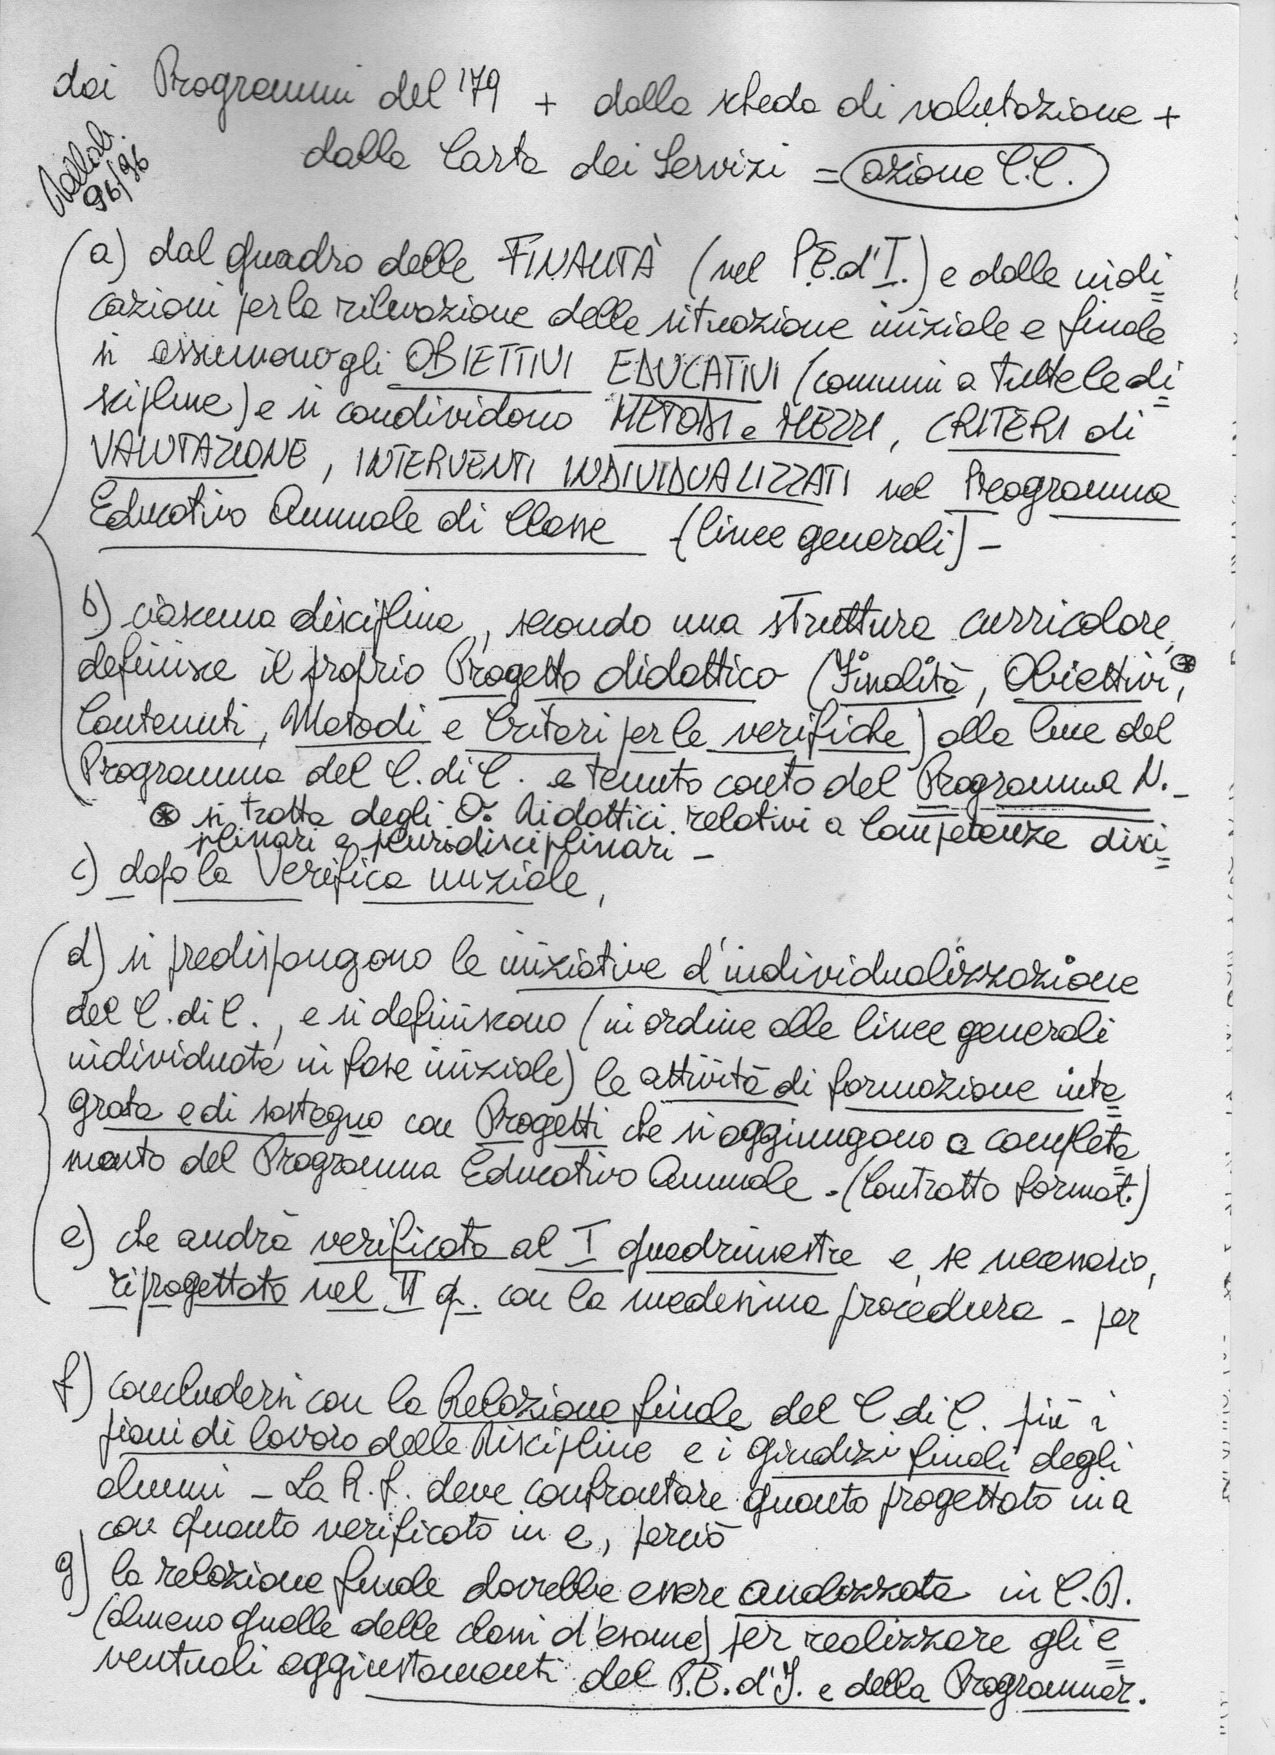 dai Programmi del '79 + dalla scheda di valutazione +
dalla Carta dei Servizi = azione C.C.
96/96
a) dal quadro delle FINALITÀ (nel P.E.d'I.) e dalle indi=
cazioni per la rilevazione della situazione iniziale e finale
si assumono gli OBIETTIVI EDUCATIVI (comuni a tutte le di=
scipline) e si condividono METODI e MEZZI, CRITERI di
VALUTAZIONE, INTERVENTI INDIVIDUALIZZATI nel Programma
Educativo Annuale di Classe (linee generali) -
b) ciascuna disciplina, secondo una struttura curricolare,
definisce il proprio Progetto didattico (Finalità, Obiettivi*,
Contenuti, Metodi e Criteri per le verifiche) alla luce del
Programma del C. di C. e tenuto conto del Programma N. -
* si tratta degli O. Didattici relativi a Competenze disci=
plinari e pluridisciplinari -
c) dopo la Verifica iniziale,
d) si predispongono le iniziative d'individualizzazione
del C. di C., e si definiscono (in ordine alle linee generali
individuate in fase iniziale) le attività di formazione inte=
grata e di sostegno con Progetti che si aggiungono a completa=
mento del Programma Educativo Annuale - (Contratto format.)
e) che andrà verificato al I quadrimestre e, se necessario,
riprogettato nel II q. con la medesima procedura - per
f) concludersi con la Relazione finale del C. di C. più i
piani di lavoro delle Discipline e i giudizi finali degli
alunni - La R. f. deve confrontare quanto progettato in a
con quanto verificato in e, perciò
g) la relazione finale dovrebbe essere analizzata in C.D.
(almeno quelle delle classi d'esame) per realizzare gli e=
ventuali aggiustamenti del P.E.d'I. e della Programmaz.